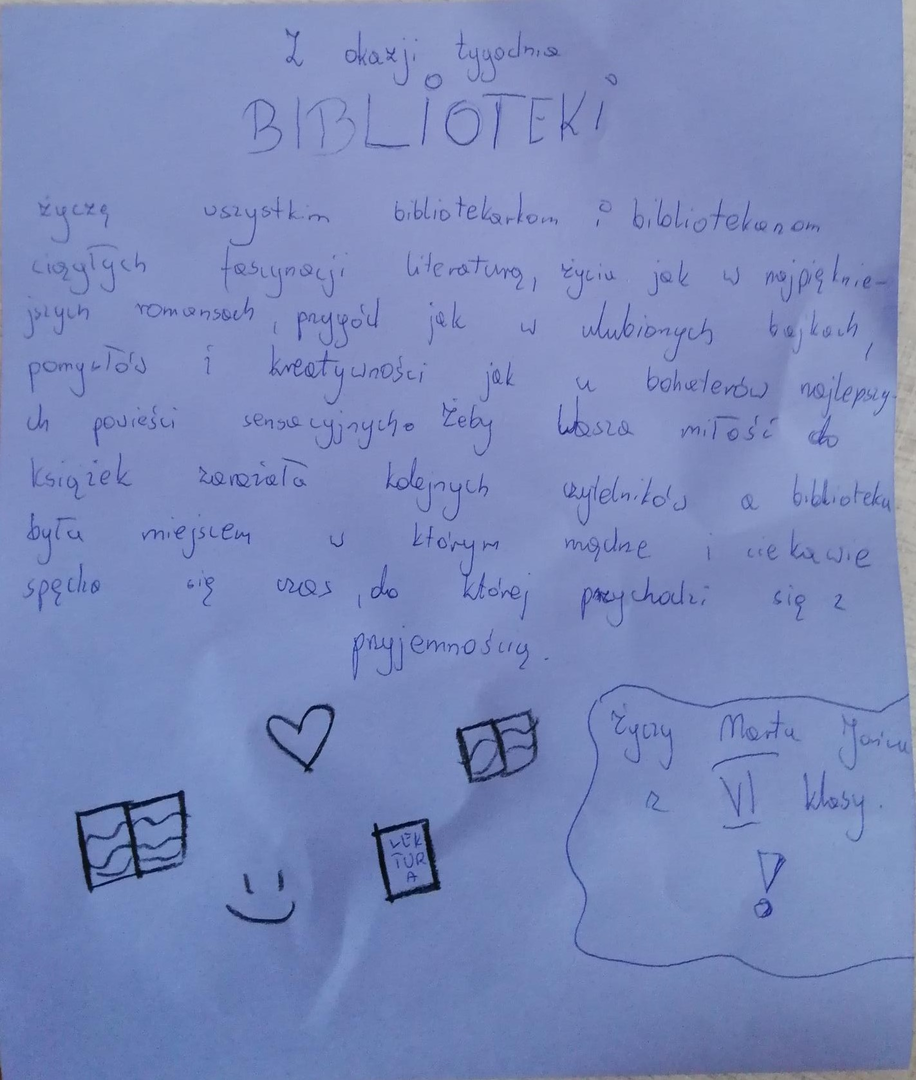 Z okazji tygodnia
BIBLIOTEKI
życzę wszystkim bibliotekarkom i bibliotekarzom
ciągłych fascynacji literaturą, życia jak w najpięknie-
jszych romansach, przygód jak w ulubionych bajkach,
pomysłów i kreatywności jak u bohaterów najlepszy-
ch powieści sensacyjnych. Żeby Wasza miłość do
książek zarażała kolejnych czytelników a biblioteka
była miejscem w którym mądrze i ciekawie
spędza się czas, do której przychodzi się z
przyjemnością.
Życzy Marta
z VI klasy.
!
LEK
TUR
A